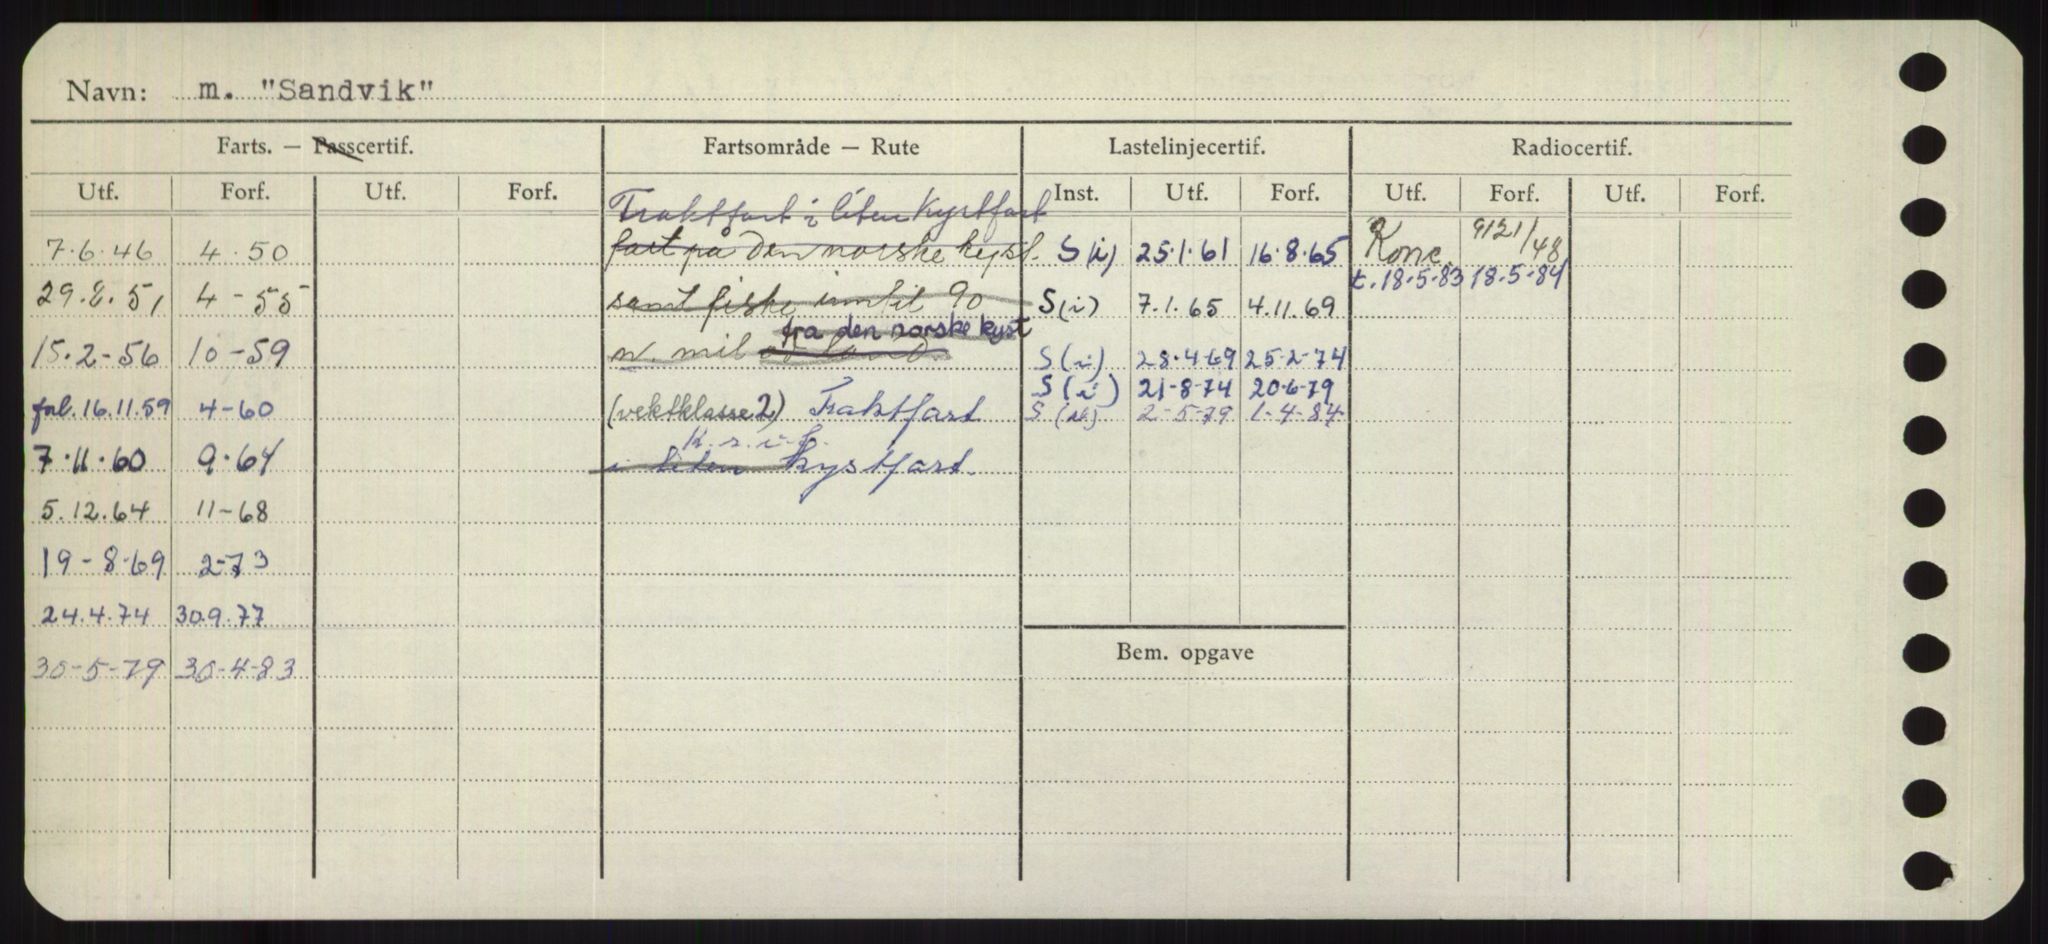 Navn: m. "Sandvik"
Farts. — Passcertif. Fartsområde — Rute Lastelinjecertif. Radiocertif.
Utf. Forf. Utf. Forf. Inst. Utf. Forf. Utf. Forf. Utf. Forf.
Fraktfart i liten Kystfart
7.6.46 4.50 fart på den norske kyst. S (i) 25.1.61 16.8.65 Konc. 9121/48
t. 18.5.83 18.5.84
29.8.51 4-55 samt fiske inntil 90 S (i) 7.1.65 4.11.69
fra den norske kyst
15.2-56 10-59 n. mil av land. S (i) 28.4-69 25-2-74
S (i) 21-8-74 20-6-79
forl. 16.11.59 4-60 (vektklasse 2) Fraktfart S (i) 2-5-79 1-4-84
K.s.i.f.
7.11.60 9.64 i liten kystfart.
5.12.64 11-68
19-8-69 2-73
24.4.74 30.9.77
30-5-79 30-4-83
Bem. opgave